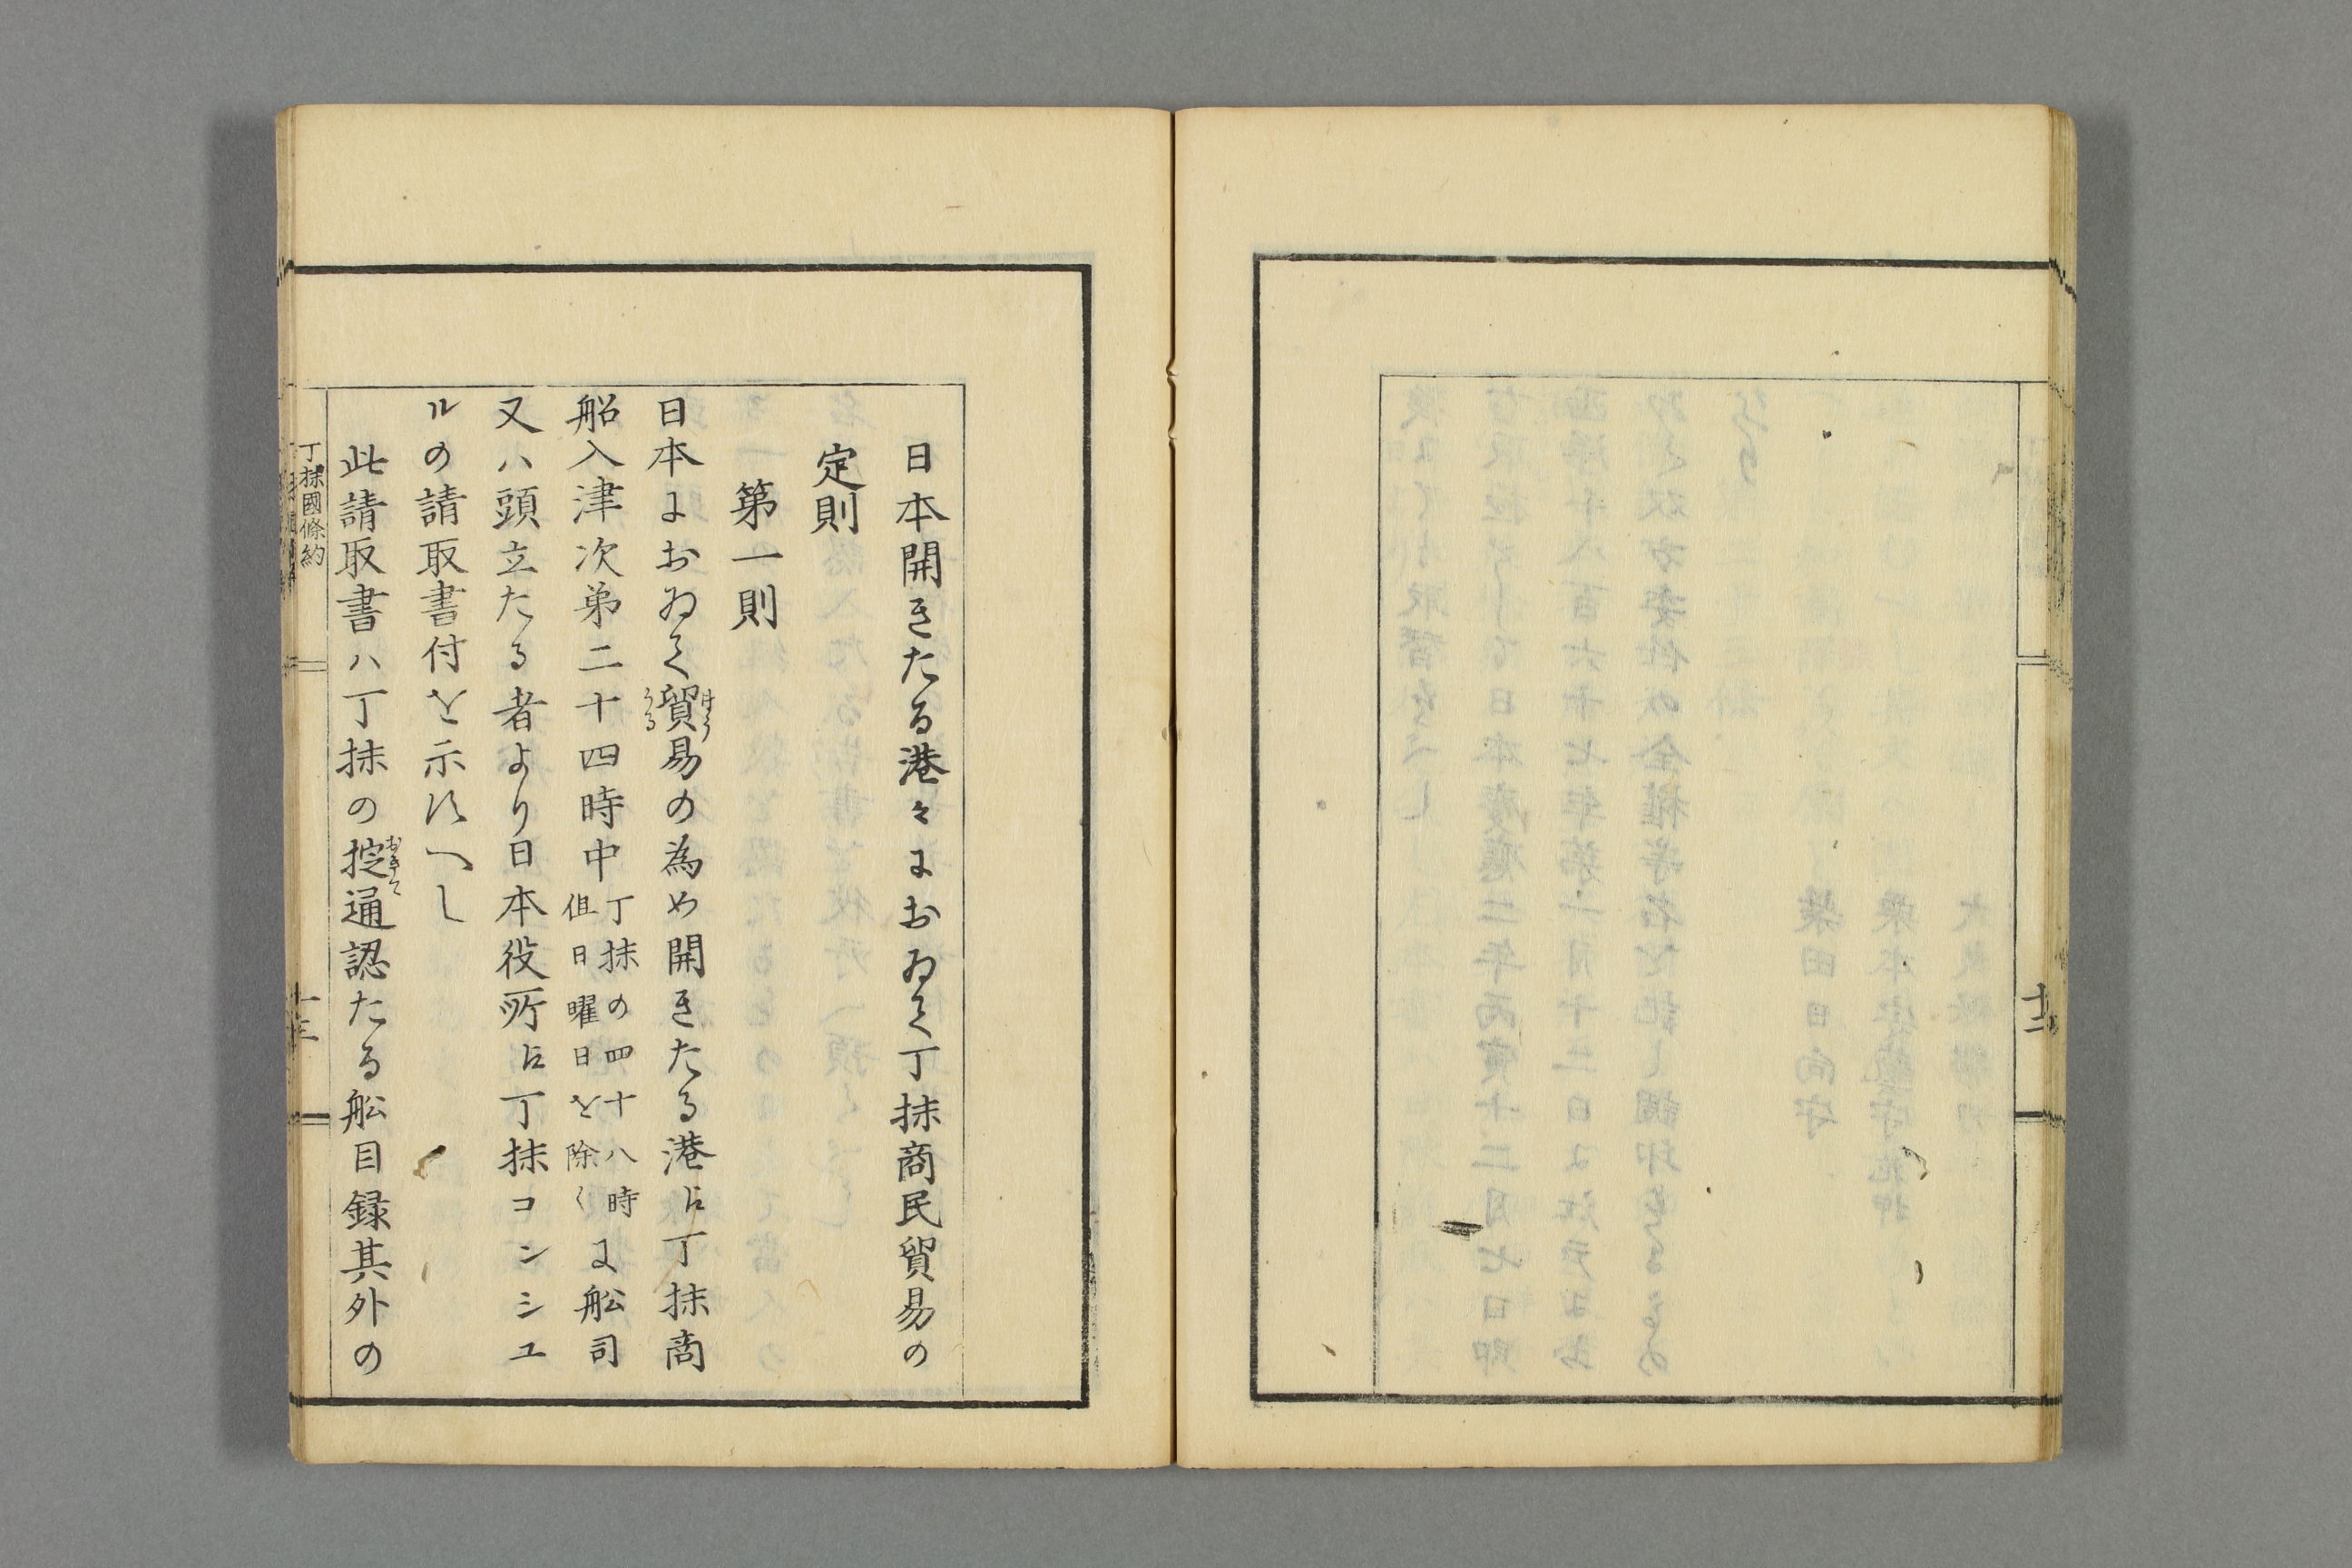 十二
日本開きたる港々におゐて丁抹商民貿易の
定則
第一則
日本におゐて貿易の為め開きたる港ゟ丁抹商
船入津次第二十四時中丁抹の四十八時但日曜日を除くに舩司
又ハ頭立たる者より日本役所ゟ丁抹コンシユ
ルの請取書付を示すへし
此請取書ハ丁抹の掟通認たる舩目録其外の
おきて
丁抹國條約
十三